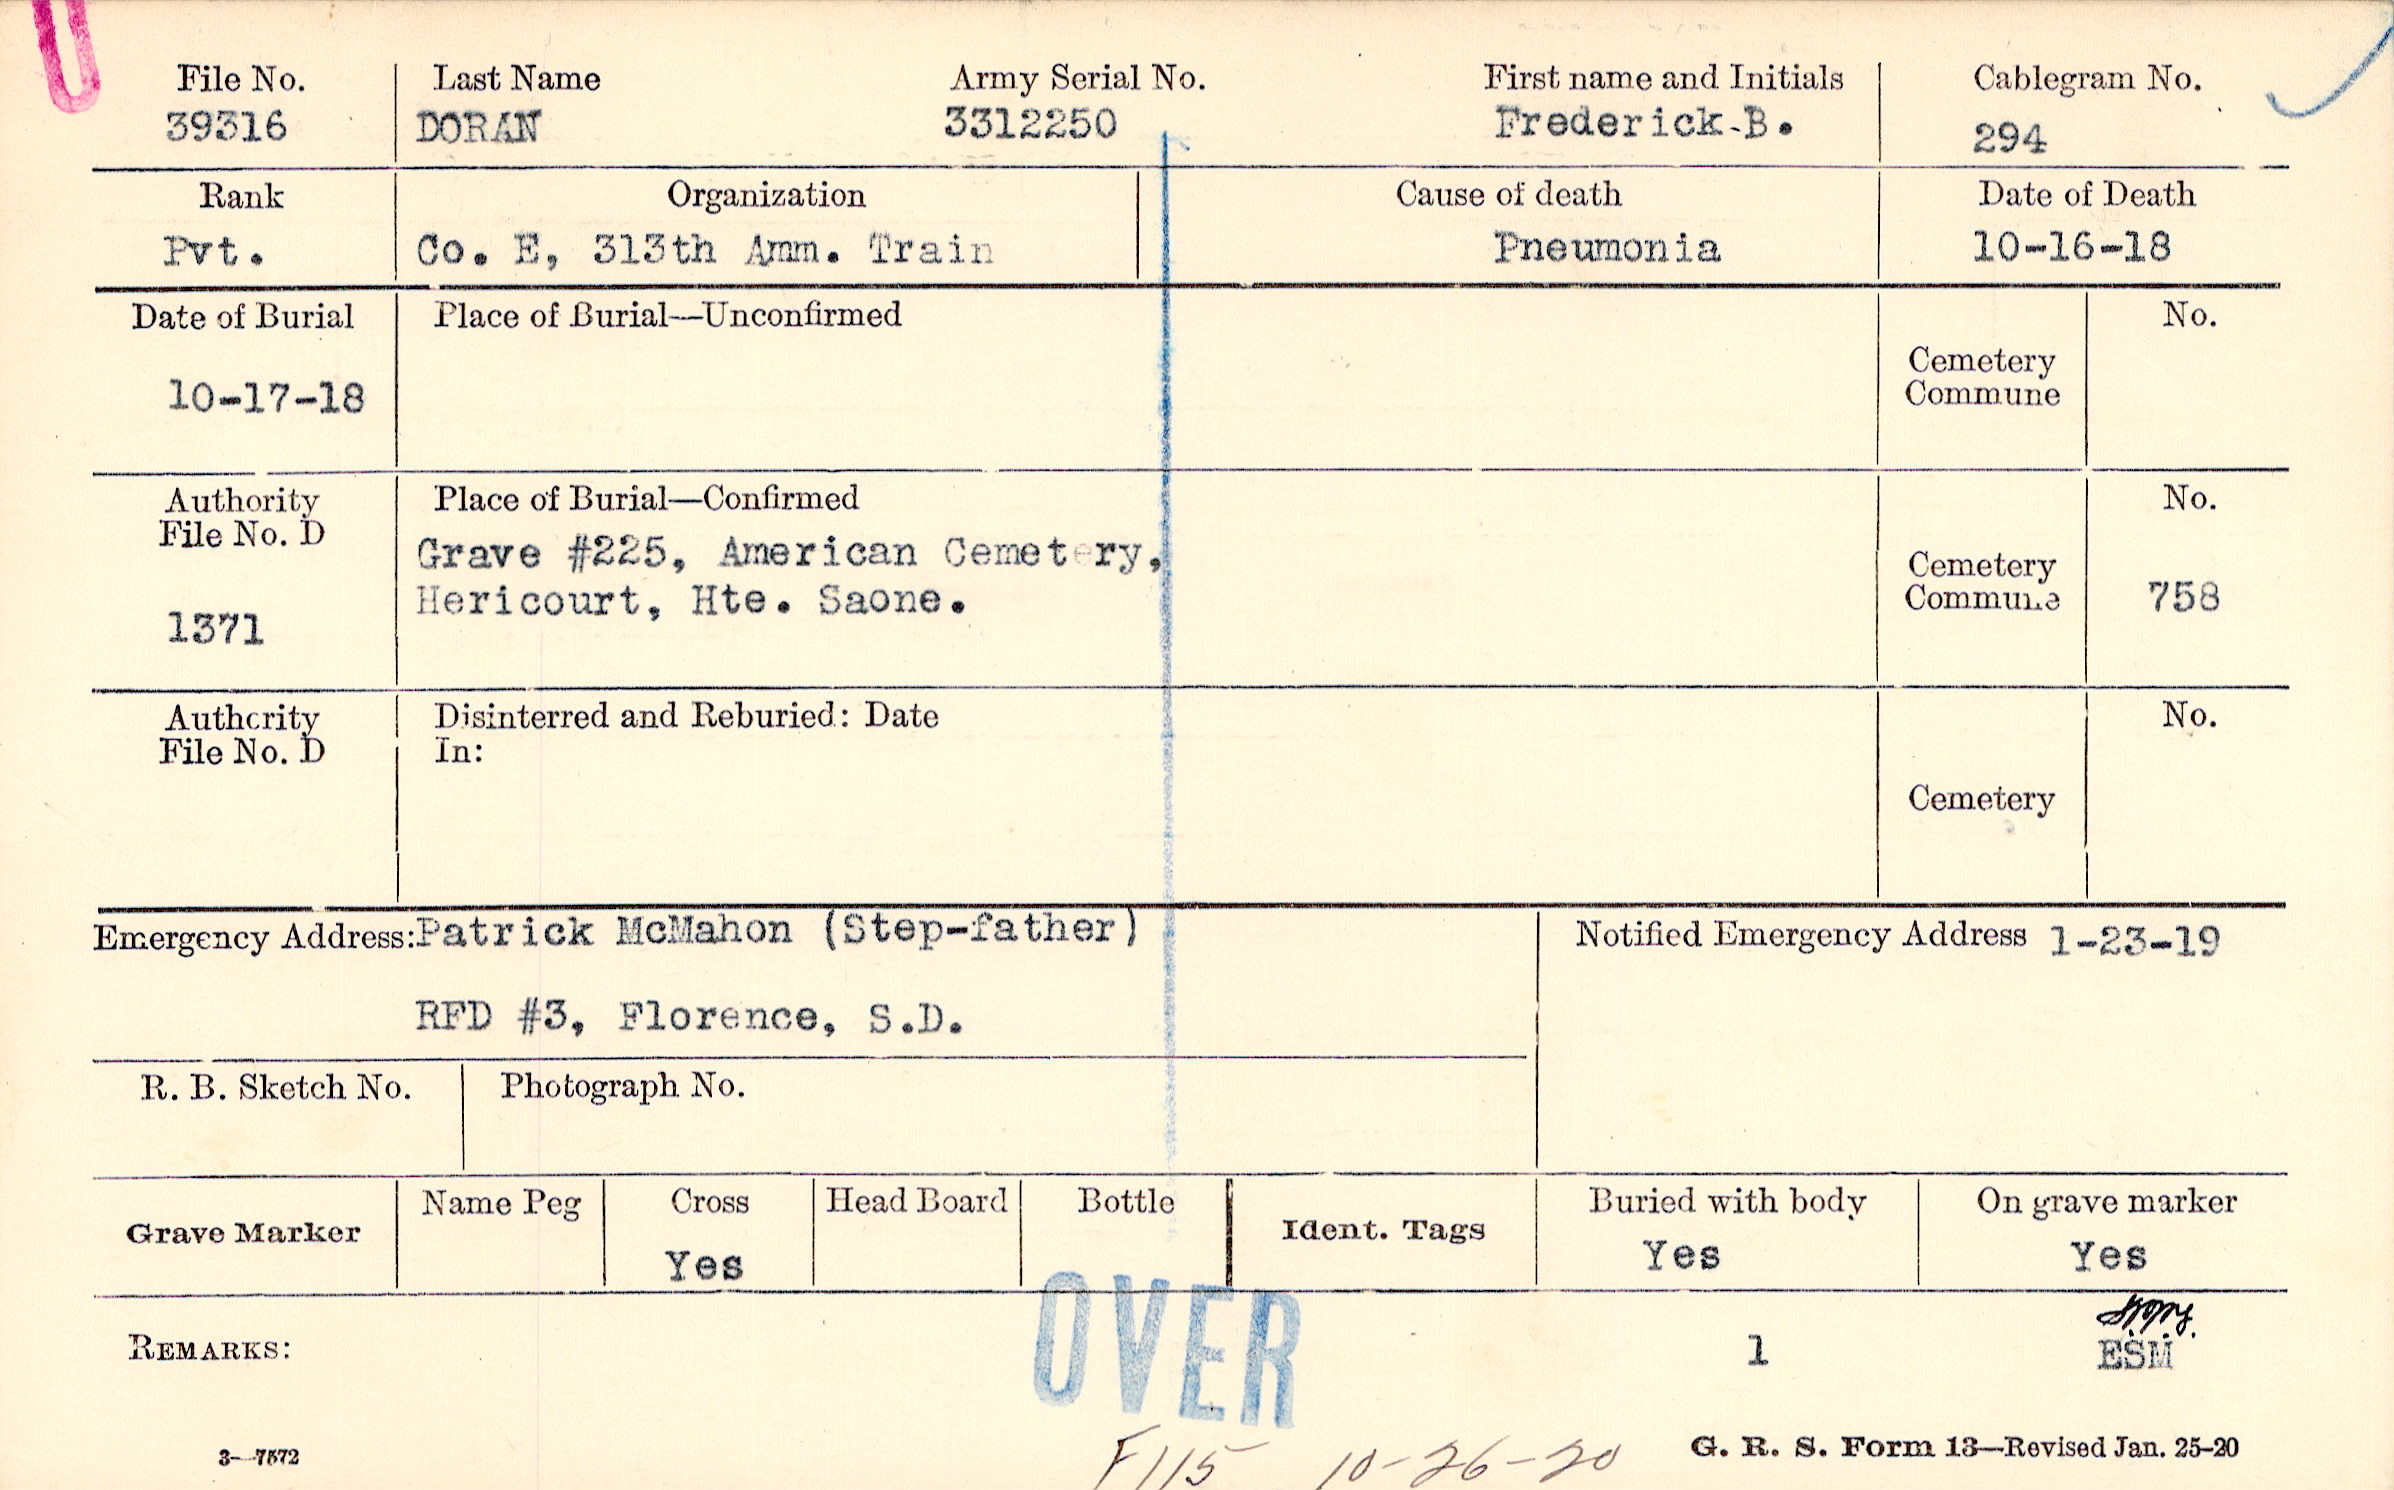 File No. Last Name Army Serial No. First name and Initials Cablegram No.
39316 DORAN 3312250 Frederick B. 294
Rank Organization Cause of death Date of Death
Pvt. Co. E, 313th Amm. Train Pneumonia 10-16-18
Date of Burial Place of Burial—Unconfirmed No.
Cemetery
Commune
10-17-18
Authority Place of Burial—Confirmed No.
File No. D
Grave #225, American Cemetery,
Cemetery
Hericourt, Hte. Saone. Commune 758
1371
Authority Disinterred and Reburied: Date No.
File No. D In:
Cemetery
Emergency Address: Patrick McMahon (Step-father) Notified Emergency Address 1-23-19
RFD #3, Florence, S.D.
R. B. Sketch No. Photograph No.
Name Peg Cross Head Board Bottle Buried with body On grave marker
Grave Marker Ident. Tags
Yes Yes Yes
OVER
REMARKS: 1 ESM
3—7572 G. R. S. Form 13—Revised Jan. 25-20
F115 10-26-20